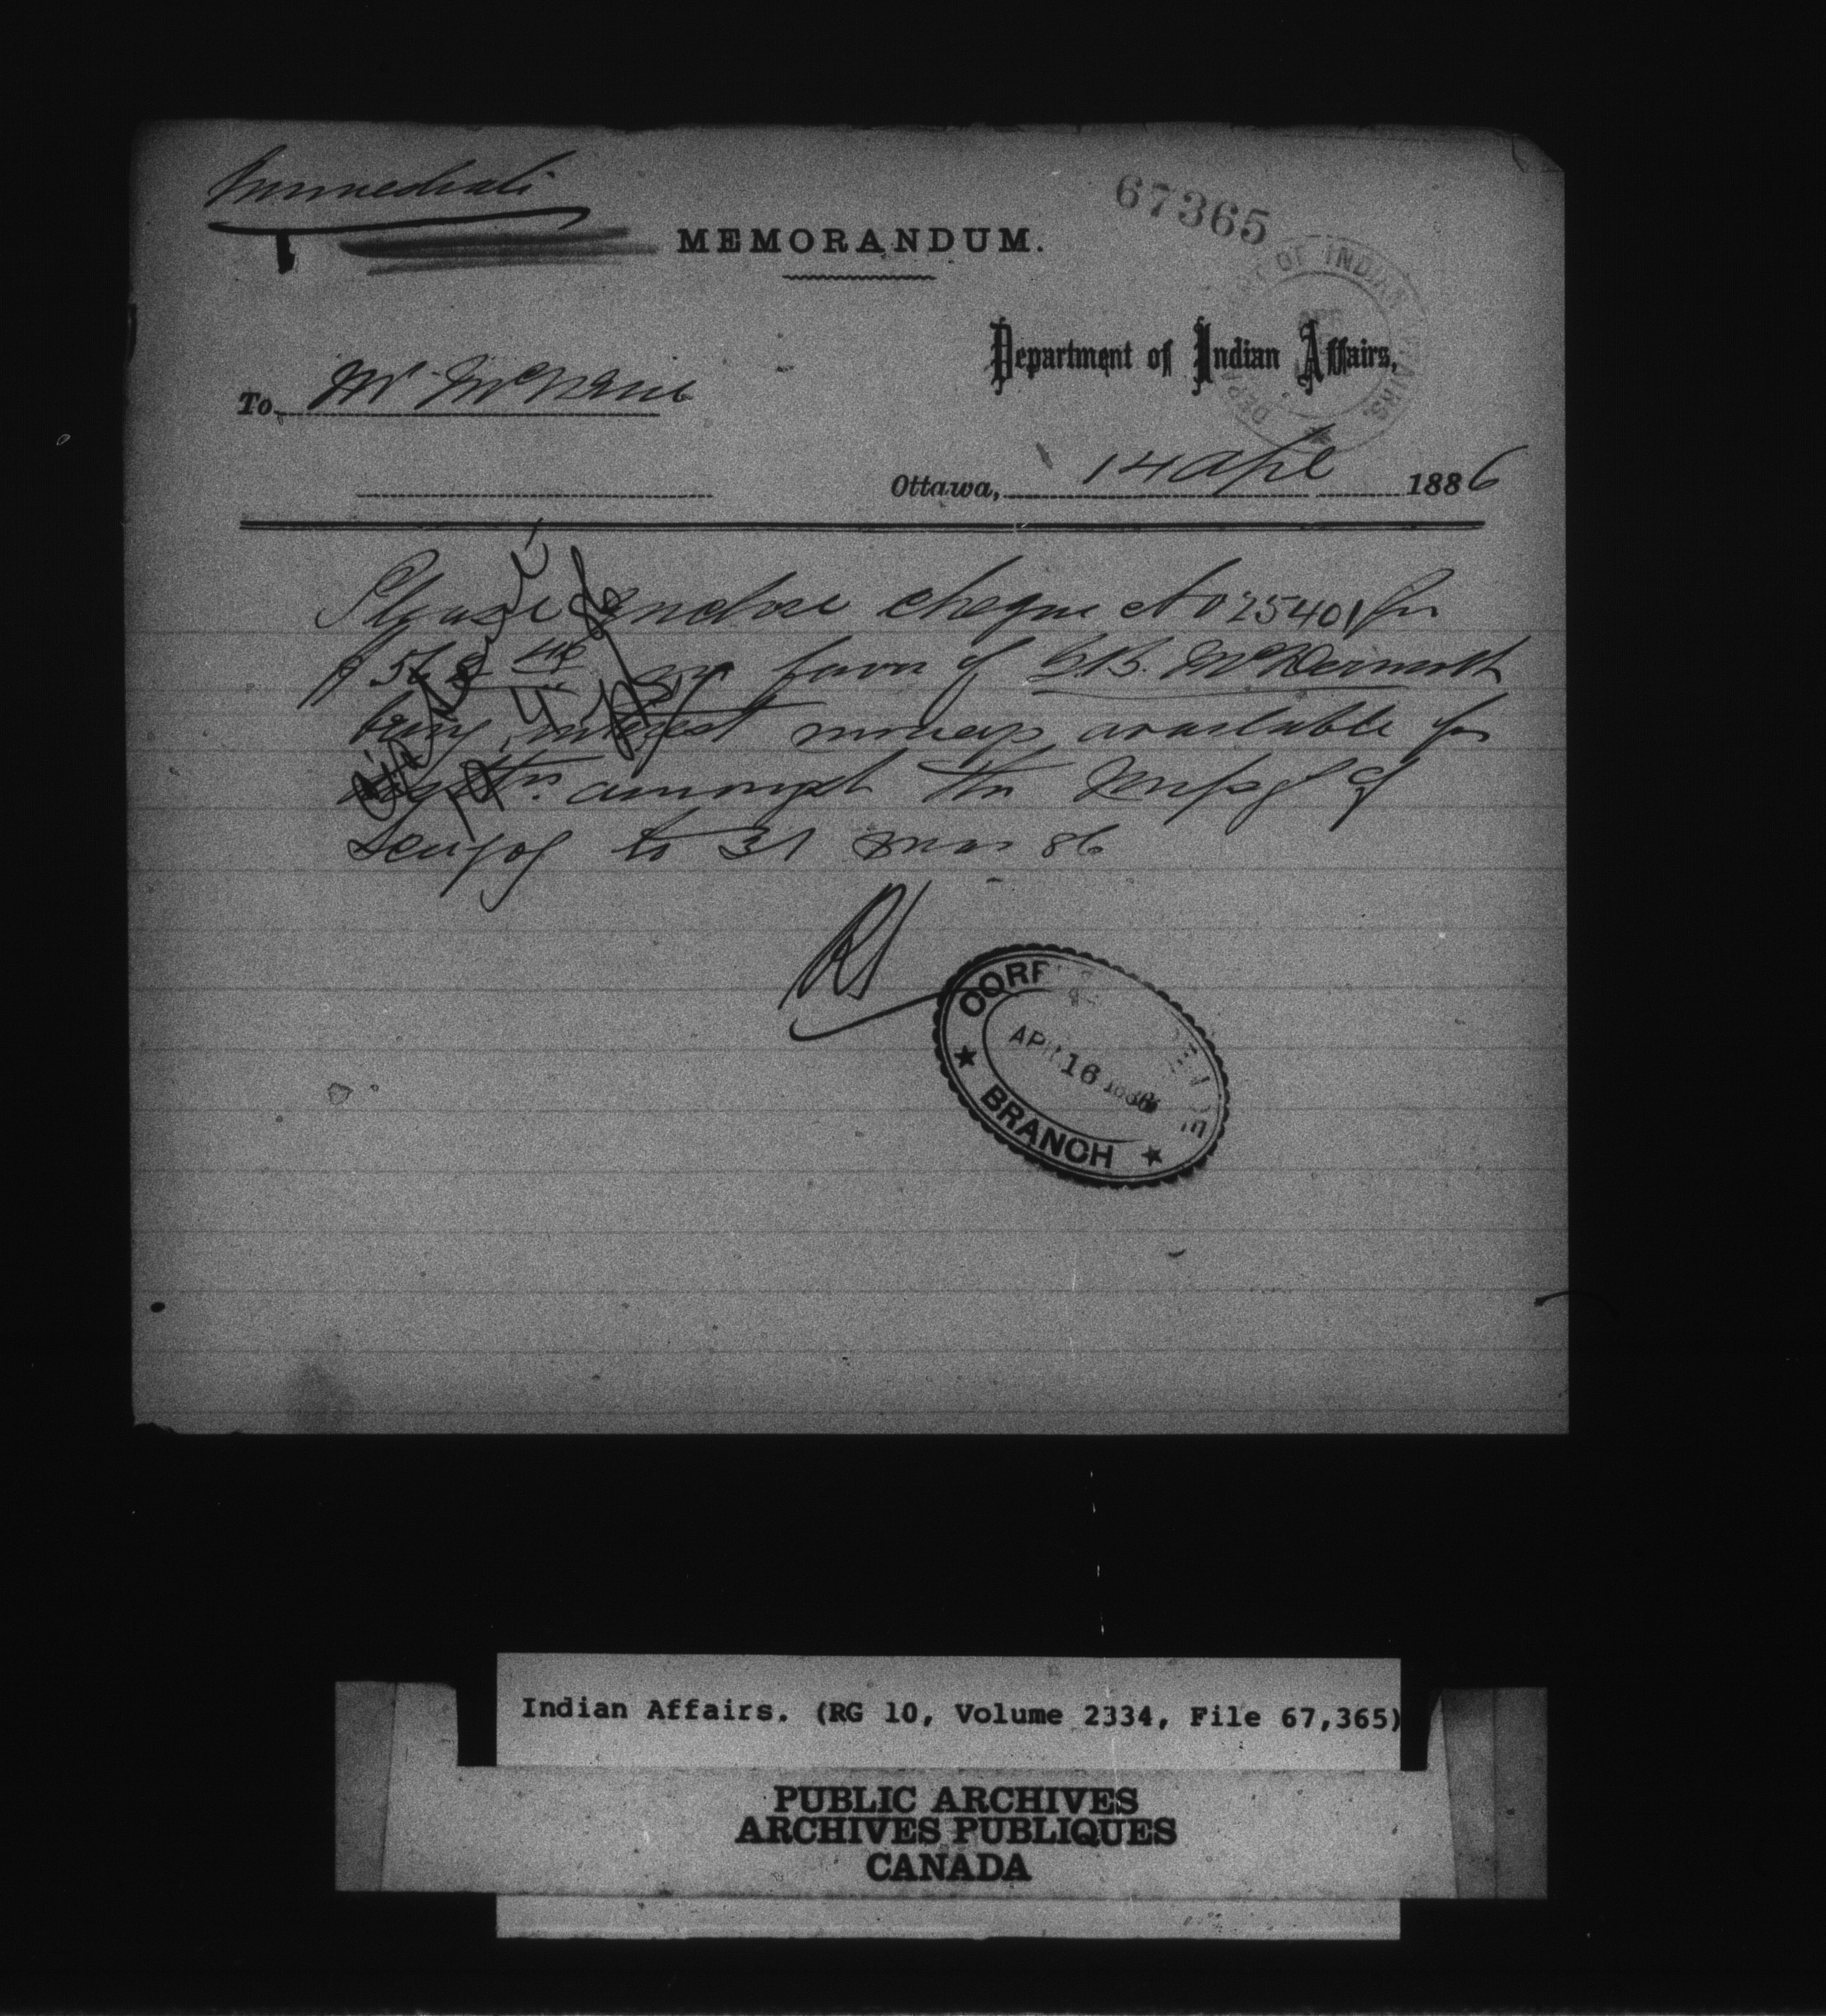 Immediate
67365
MEMORANDUM.
DEPARTMENT OF INDIAN AFFAIRS.
APR
Department of Indian Affairs,
To Mr McNeill
Ottawa, 14 Apl 1886
Please enclose cheque No 25401 for
$ 56 in favor of McDermott
being interest moneys available for
amongst the of
to 31 Mar 86
RS
CORRESPONDENCE
APR 16 1886
BRANCH
Indian Affairs. (RG 10, Volume 2334, File 67,365)
PUBLIC ARCHIVES
ARCHIVES PUBLIQUES
CANADA